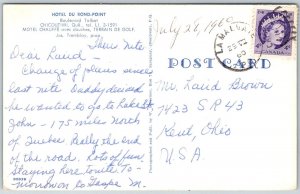 HOTEL DU ROND-POINT
Boulevard Talbot
CHICOUTIMI, QUE., tel. LI. 3-1591
MOTEL CHAUFFÉ avec douches, TERRAIN DE GOLF.
Jos. Tremblay, prop.
Thur Nite
Dear Laurel —
Change of plans since
last note Buddy decided
he wanted to go to Lake St
John - 175 miles North
of Quebec Really the end
of the road. Lots of fun
Staying here tonite To-
morrow on to Gaspe M.
July 26, 1960
POST CARD
Mr. Laurel Brown
7423 SR 43
Kent, Ohio
U.S.A.